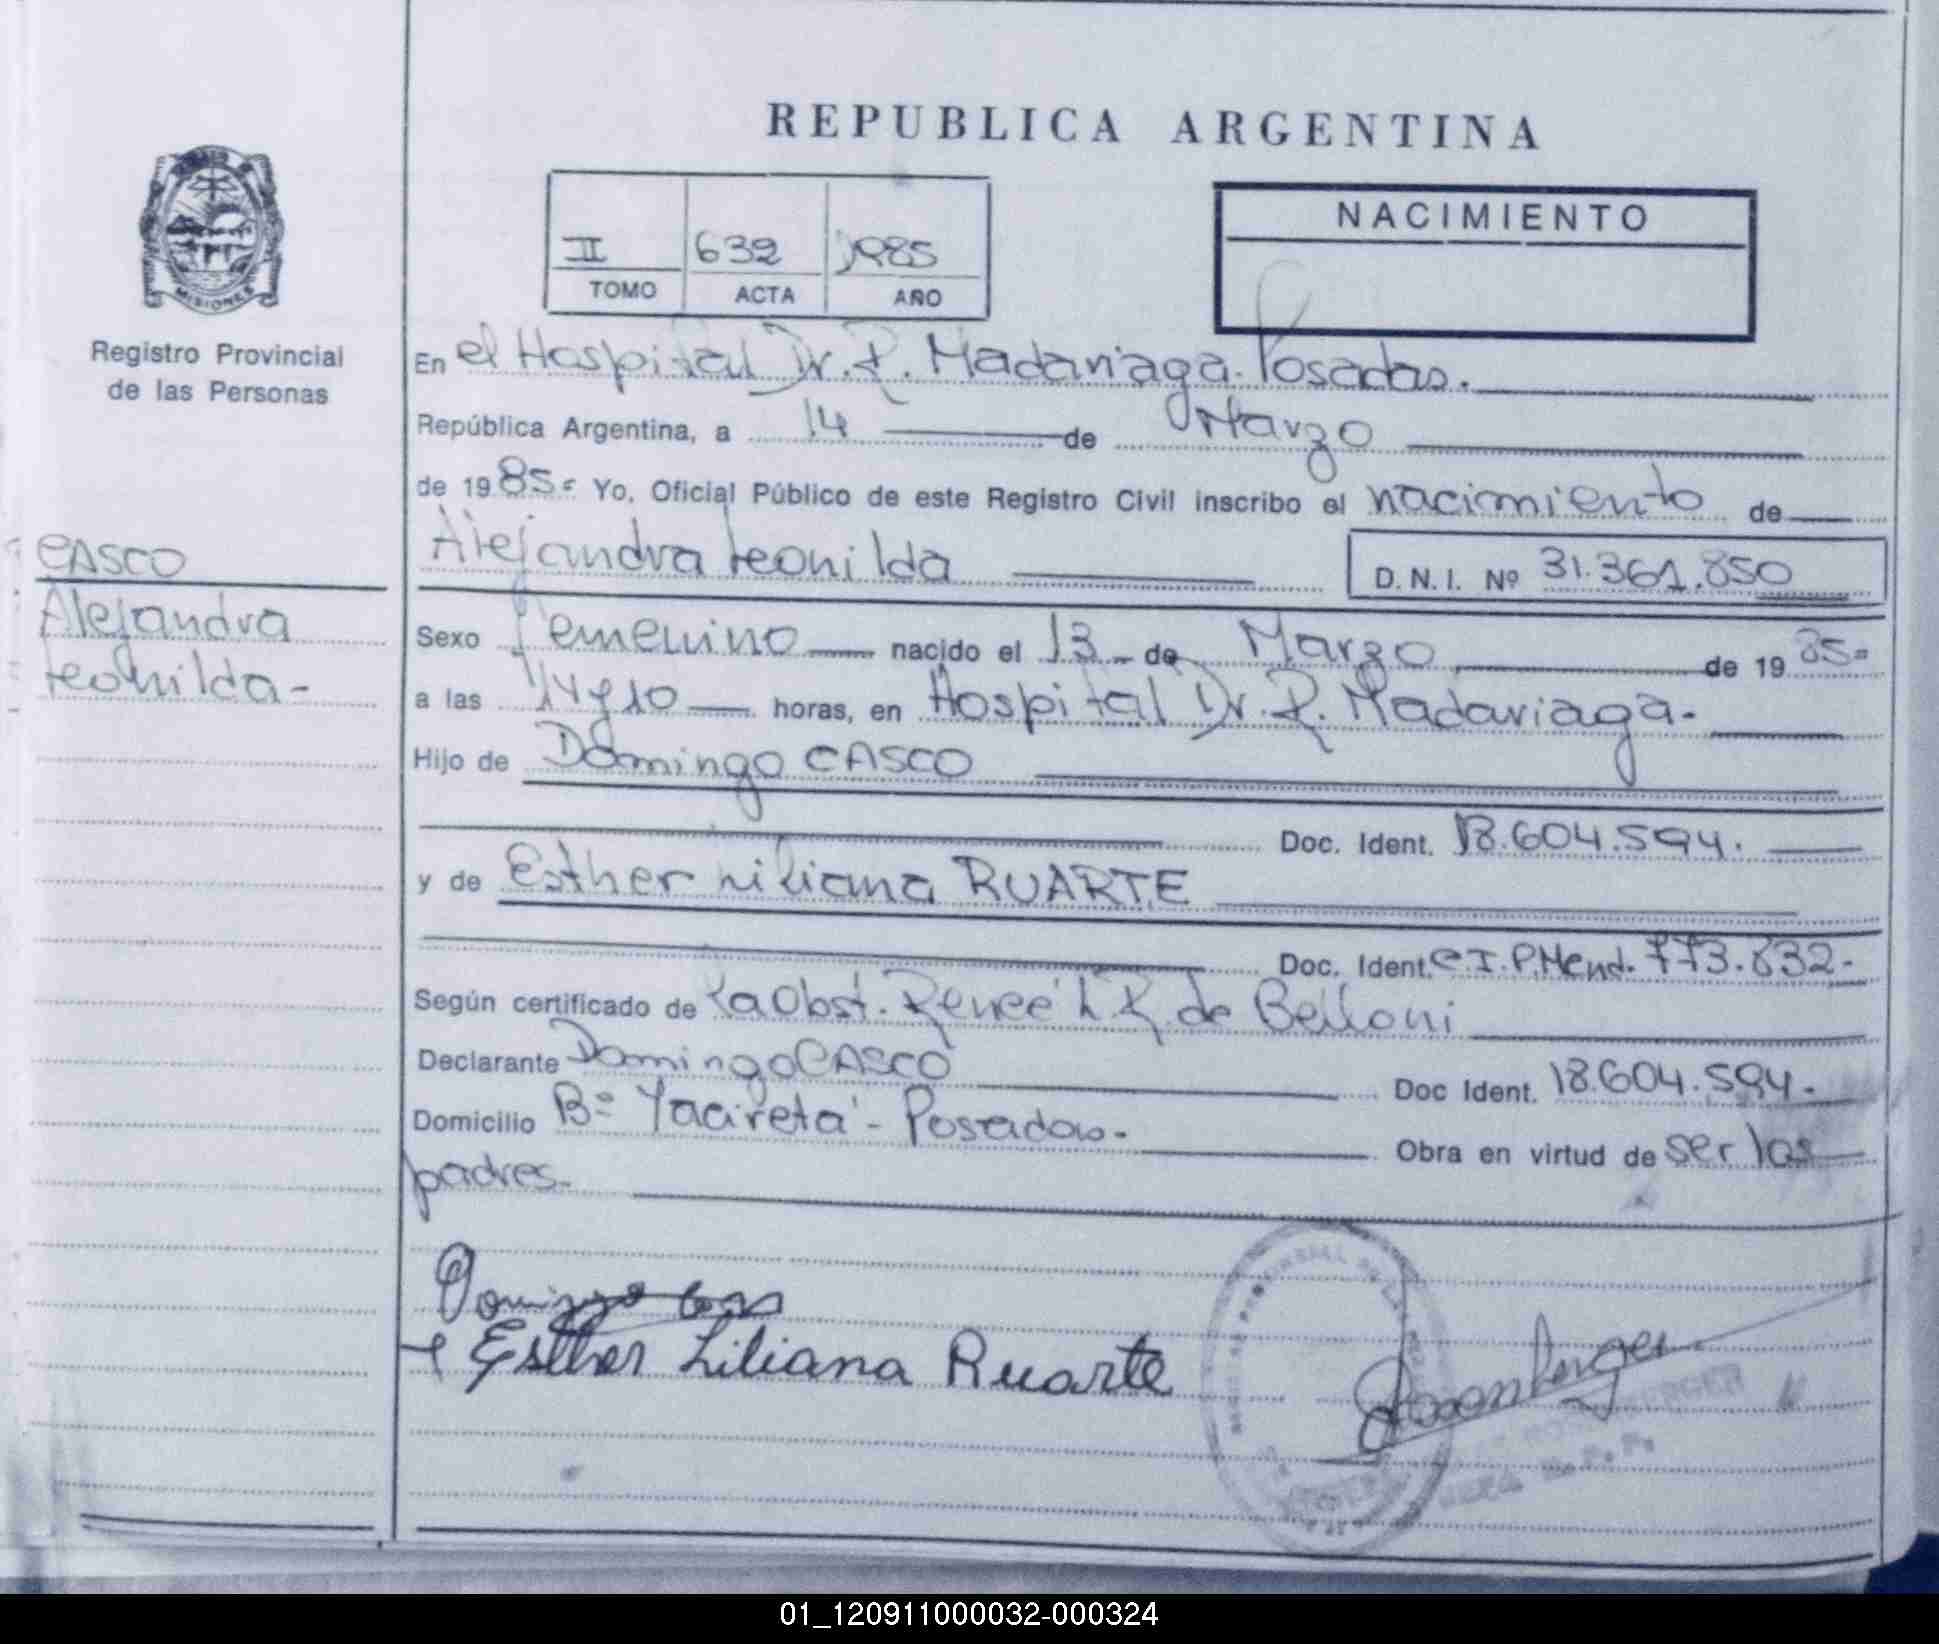 REPUBLICA ARGENTINA
MISIONES
Registro Provincial
de las Personas
II 632 1985
TOMO ACTA AÑO
NACIMIENTO
En el Hospital Dr. R. Madariaga. Posadas.
República Argentina, a 14 de Marzo
de 1985= Yo, Oficial Público de este Registro Civil inscribo el nacimiento de
Alejandra Leonilda
D.N.I. Nº 31.361.850
CASCO
Alejandra
Leonilda-
Sexo Femenino nacido el 13 de Marzo de 1985=
a las 14 y 10 horas, en Hospital Dr. R. Madariaga-
Hijo de Domingo CASCO
Doc. Ident. 18.604.594.
y de Esther Liliana RUARTE
Doc. Ident. C.I.P.Mend. 773.832-
Según certificado de La Obst. Reneé L R. de Belloni
Declarante Domingo CASCO Doc Ident. 18.604.594.
Domicilio Bº Yaciretá - Posadas- Obra en virtud de ser los
padres.
Domingo
Esther Liliana Ruarte
01_120911000032-000324